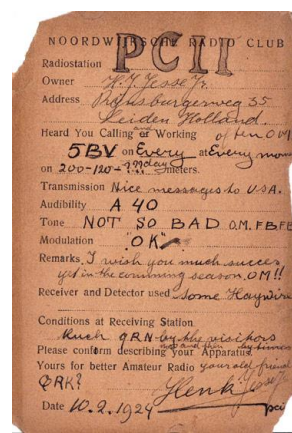 NOORDWIJKSCHE RADIO CLUB
PCII
Radiostation
Owner H.J. Jesse Jr.
Address Rijnsburgerweg 35
Leiden Holland.
Heard You Calling or and Working often OM
5BV on Every at Every
on 200-120- meters.
Transmission Nice messages to USA.
Audibility A 40
Tone NOT SO BAD O.M. FB FB
Modulation "OK"
Remarks I wish you much succes
yet in the comming season. OM!!
Receiver and Detector used some Haywire
Conditions at Receiving Station
Much QRN by the visitors
now and then
Please conform describing your Apparatus.
Yours for better Amateur Radio your old friend
QRK?
Henk Jesse Jr
Date 10.2.1924 pcii